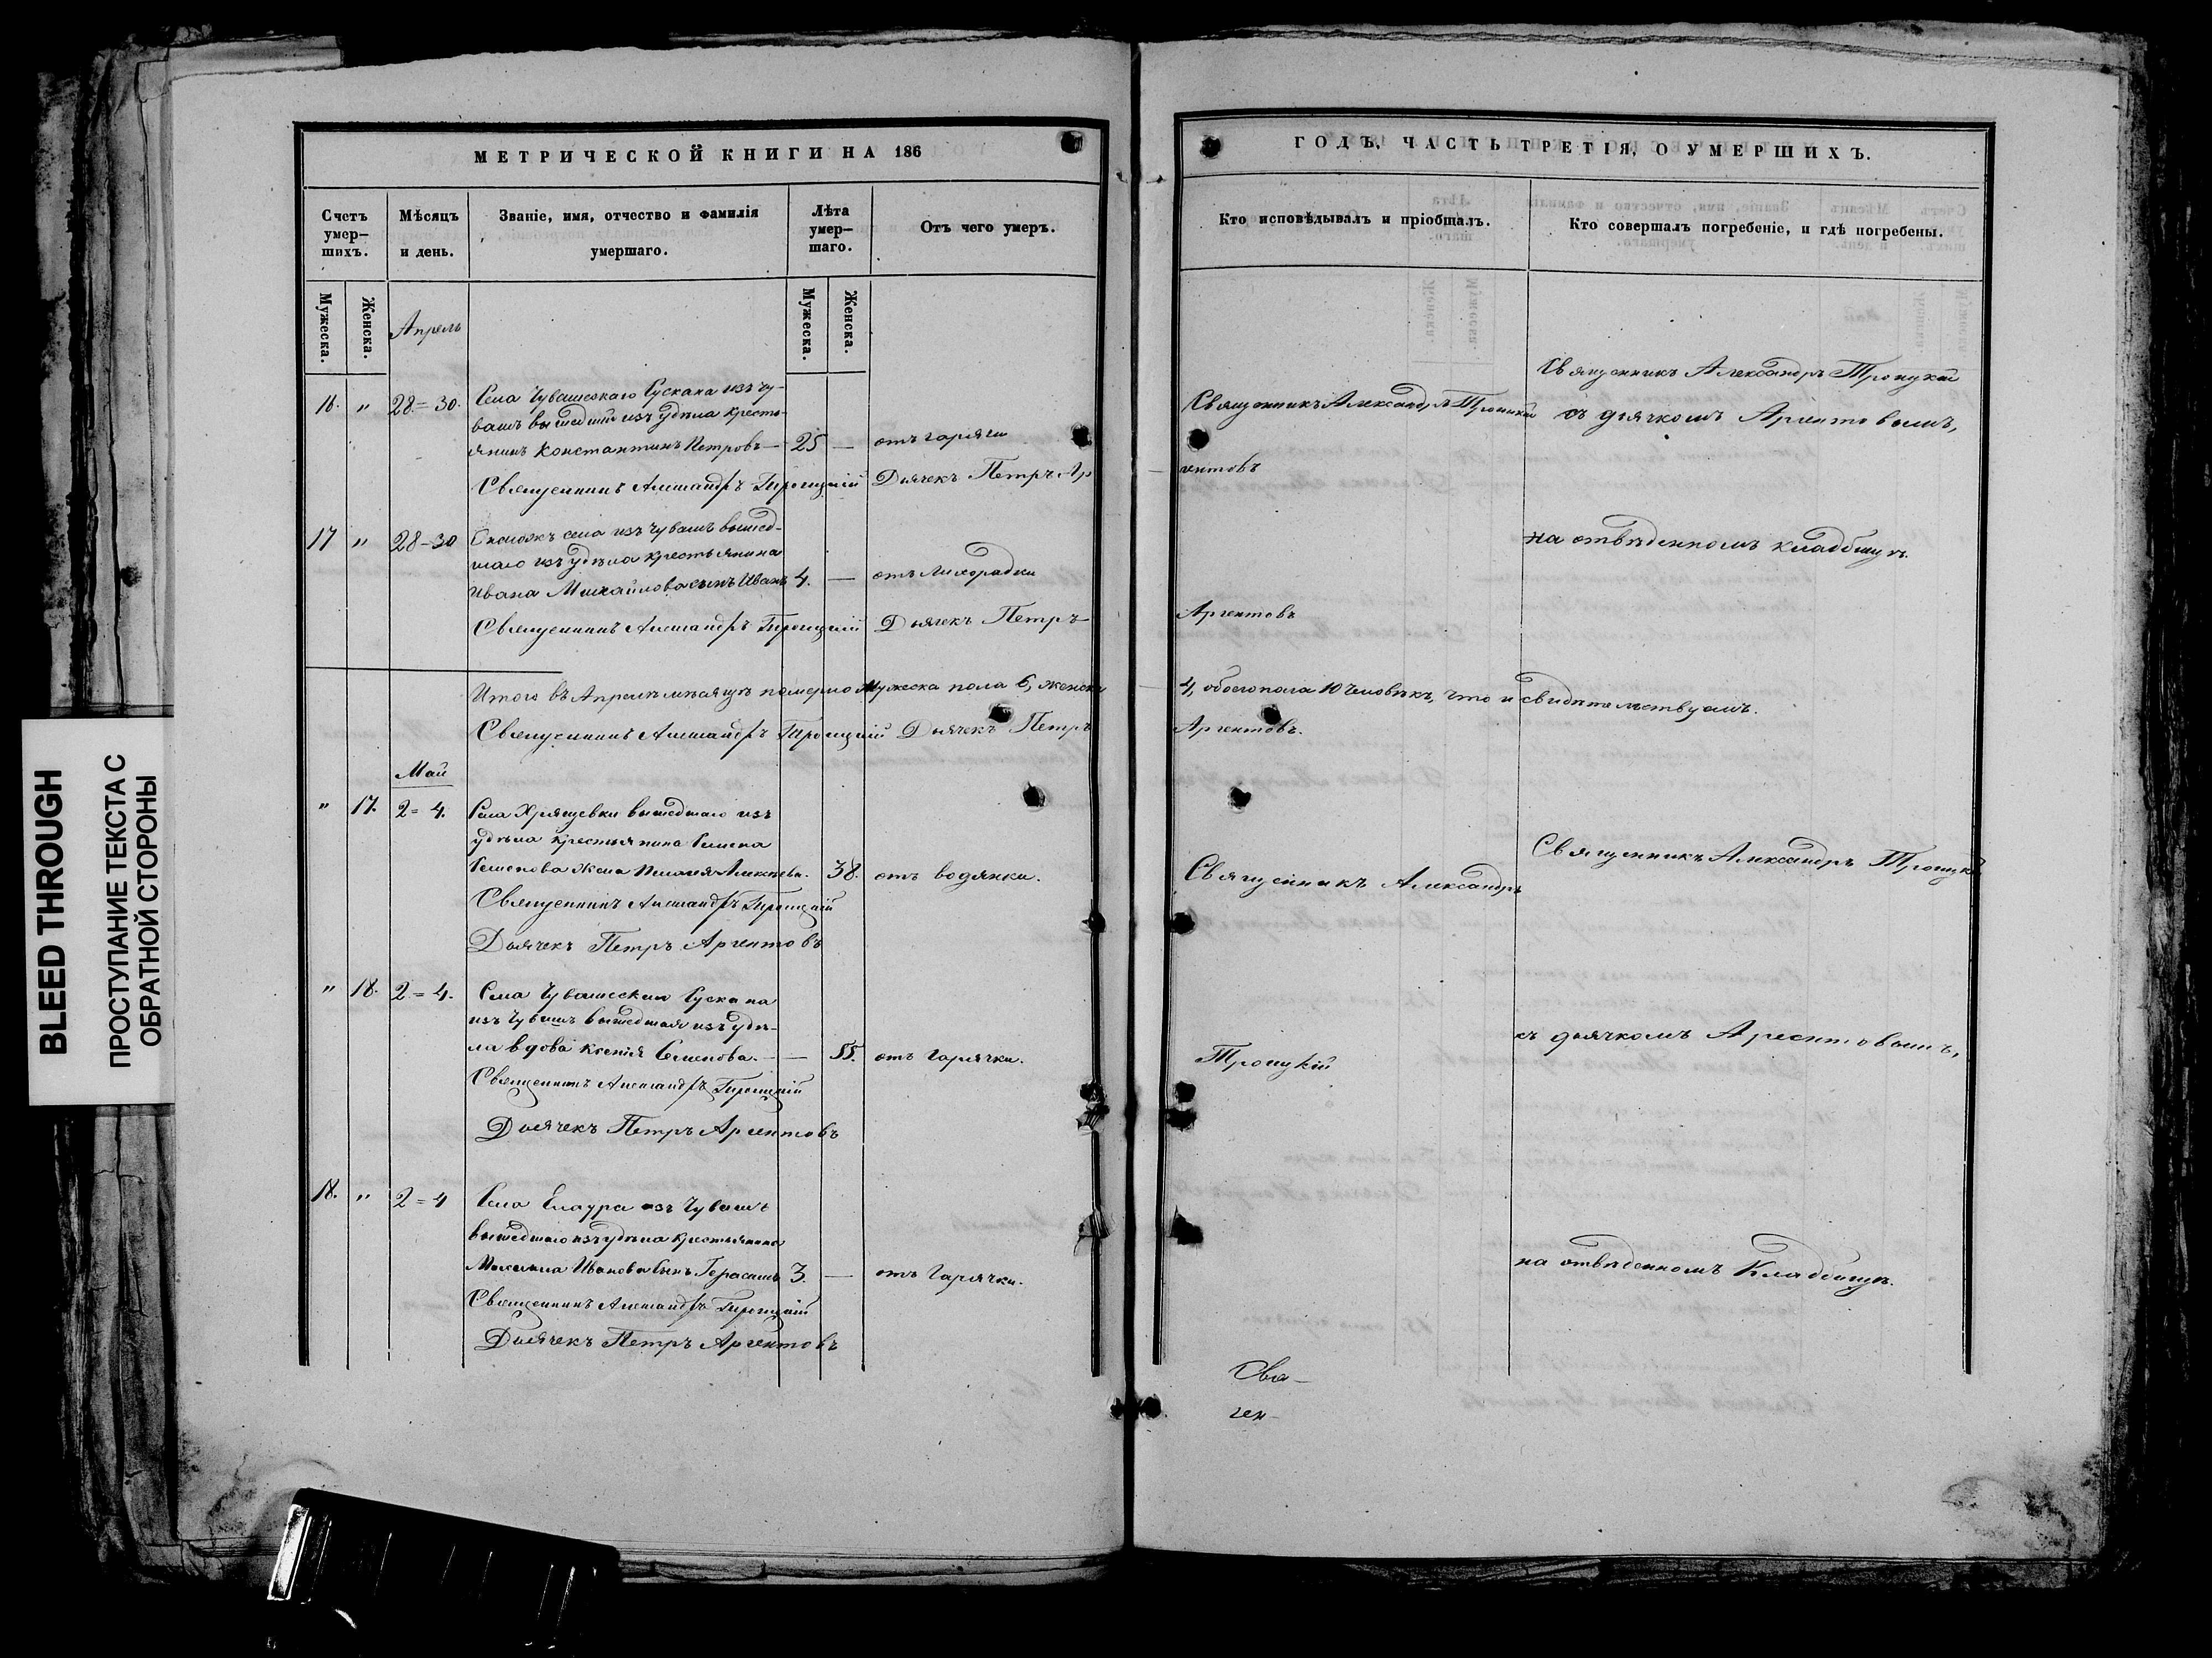 BLEED THROUGH
ПРОСТУПАНИЕ ТЕКСТА С
ОБРАТНОЙ СТОРОНЫ
МЕТРИЧЕСКОЙ КНИГИ НА 186
Счетъ умер-шихъ.
Мѣсяцъ и день.
Званіе, имя, отчество и фамилія умершаго.
Лѣта умер-шаго.
Отъ чего умеръ.
Мужеска.
Женска.
Апрель
Мужеска.
Женска.
16. " 28=30. Села Чувашскаго Сускана изъ чу-
вашъ вышедшій изъ удѣла кресть-
янинъ Константинъ Петровъ— 25 — отъ горячки
Священникъ Александръ Троицкій Дьячекъ Петръ Ар
17 " 28-30 села изъ чувашъ вышед-
шаго изъ удѣла крестьянина
Ивана Михайлова сынъ Иванъ 4. — отъ лихорадки
Священникъ Александръ Троицкій Дьячекъ Петръ
Итого въ Апрелѣ мѣсяцѣ померло мужеска пола 6, женска
Священникъ Александръ Троицкій Дьячекъ Петръ
Май
" 17. 2=4. Села Хрящевки вышедшаго изъ
удѣла крестьянина Семена
Семенова жена Пелагея Алексѣева. 38. отъ водянки.
Священникъ Александръ Троицкій
Дьячекъ Петръ Аргентовъ
" 18. 2=4. Села Чувашскаго Сускана
изъ Чувашъ вышедшая изъ удѣ-
ла вдова Ксенія Семенова. — 55. отъ горячки.
Священникъ Александръ Троицкій
Дьячекъ Петръ Аргентовъ
18. " 2=4 Села Елаура изъ Чувашъ
вышедшаго изъ удѣла крестьянина
Иванова сынъ Герасимъ 3. — отъ горячки.
Священникъ Александръ Троицкій
Дьячекъ Петръ Аргентовъ
ГОДЪ, ЧАСТЬ ТРЕТІЯ, О УМЕРШИХЪ.
Кто исповѣдывалъ и пріобщалъ.
Кто совершалъ погребеніе, и гдѣ погребены.
Священникъ Александръ Троицкій
Священникъ Александръ Троицкій
съ дьячкомъ Аргентовымъ,
гентовъ
на отведенномъ кладбищѣ.
Аргентовъ
4, обоего пола 10 человѣкъ, что и свидѣтельствуемъ.
Аргентовъ.
Священникъ Александръ Троицкій
Священникъ Александръ
съ дьячкомъ Аргентовымъ,
Троицкій
на отведенномъ кладбищѣ.
Свя-
щен-